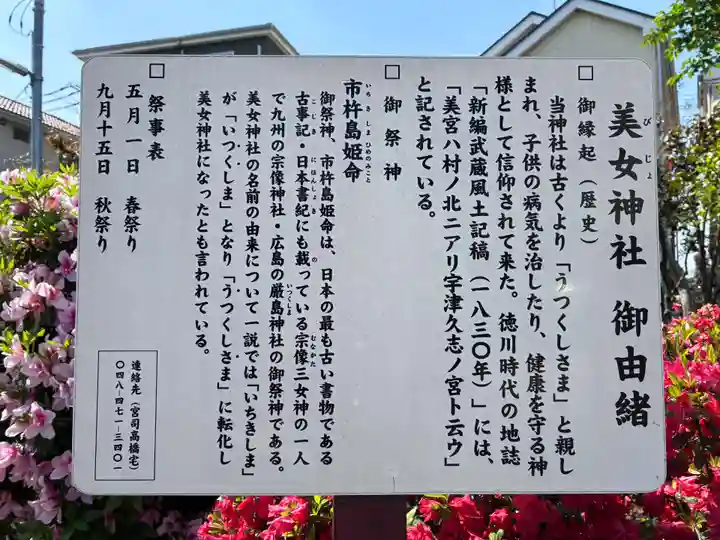 美女神社 御由緒
びじょ
□御縁起(歴史)
当神社は古くより「うつくしさま」と親し
まれ、子供の病気を治したり、健康を守る神
様として信仰されて来た。徳川時代の地誌
「新編武蔵風土記稿(一八三〇年)」には、
「美宮ハ村ノ北ニアリ宇津久志ノ宮ト云ウ」
と記されている。
□御祭神
市杵島姫命
いちきしまひめのみこと
御祭神、市杵島姫命は、日本の最も古い書物である
古事記・日本書紀にも載っている宗像三女神の一人
こじき にほんしょき の むなかた
で九州の宗像神社・広島の厳島神社の御祭神である。
いつくしま
美女神社の名前の由来について一説では「いちきしま」
が「いつくしま」となり「うつくしさま」に転化し
美女神社になったとも言われている。
□祭事表
五月一日 春祭り
九月十五日 秋祭り
連絡先(宮司高橋宅)
〇四八-四七一-三四〇一